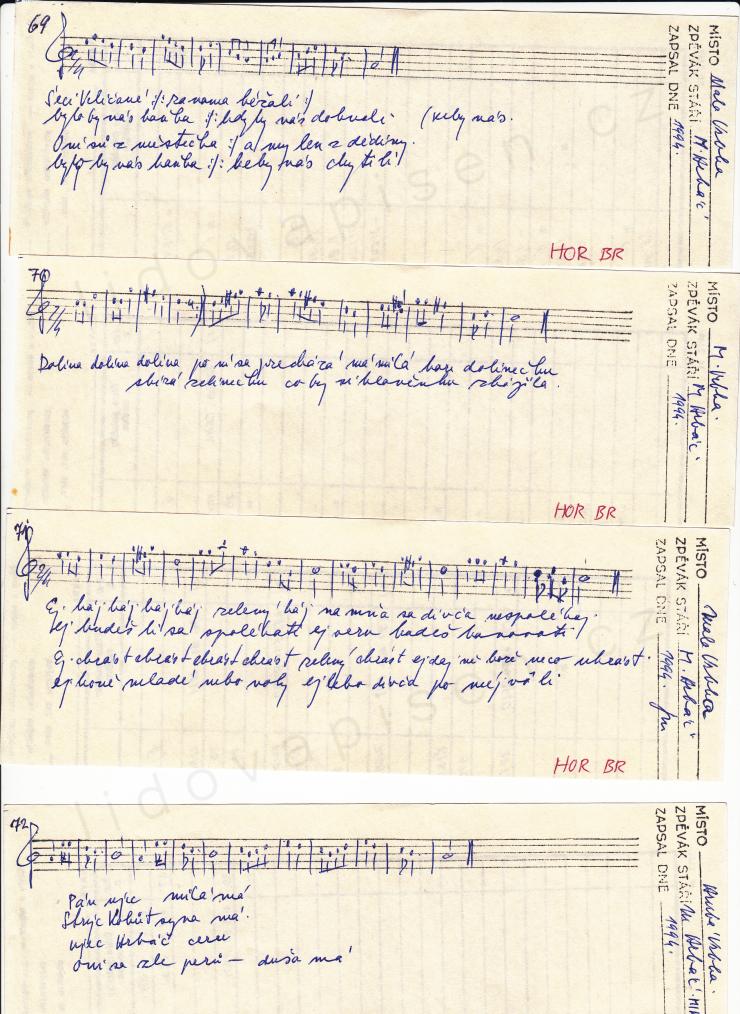 69
2/4
Seci Veličané :/: za nama běžali :/
byloby nás haňba :/: kdyby nás dohnali (keby nás.
Oni sú z městečka :/ a my len z dědiny.
byloby nás haňba :/: keby nás chytili
MÍSTO Malá Vrbka
ZPĚVÁK STÁŘÍ M. Hrbáč
ZAPSAL DNE 1994.
HOR BR
70
2/4
Dolina dolina dolina po ní sa prechází má milá
sbírá zelinečku co by si hlavěnku zhojila.
MÍSTO M. Vrbka.
ZPĚVÁK STÁŘÍ M Hrbáč.
ZAPSAL DNE 1994.
HOR BR
71
2/4
Ej háj háj háj háj zelený háj na mňa sa divča nespoléhaj.
ej budeš li sa spoléhati ej veru budeš banovati
Ej chrást chrást chrást chrást zelený chrást ej daj ně bože neco ukrást.
ej koně mladé nebo voly ej lebo divča po mej vůli
MÍSTO Malá Vrbka
ZPĚVÁK STÁŘÍ M. Hrbáč
ZAPSAL DNE 1994.
HOR BR
72
Pán ujec milá má
Strýc Kohút syna má.
ujec Hrbáč ceru
Oni sa zle perú – duša má
MÍSTO Hrubá Vrbka.
ZPĚVÁK STÁŘÍ M Hrbáč.
ZAPSAL DNE 1994.
lidovapisen.cz
lidovapisen.cz